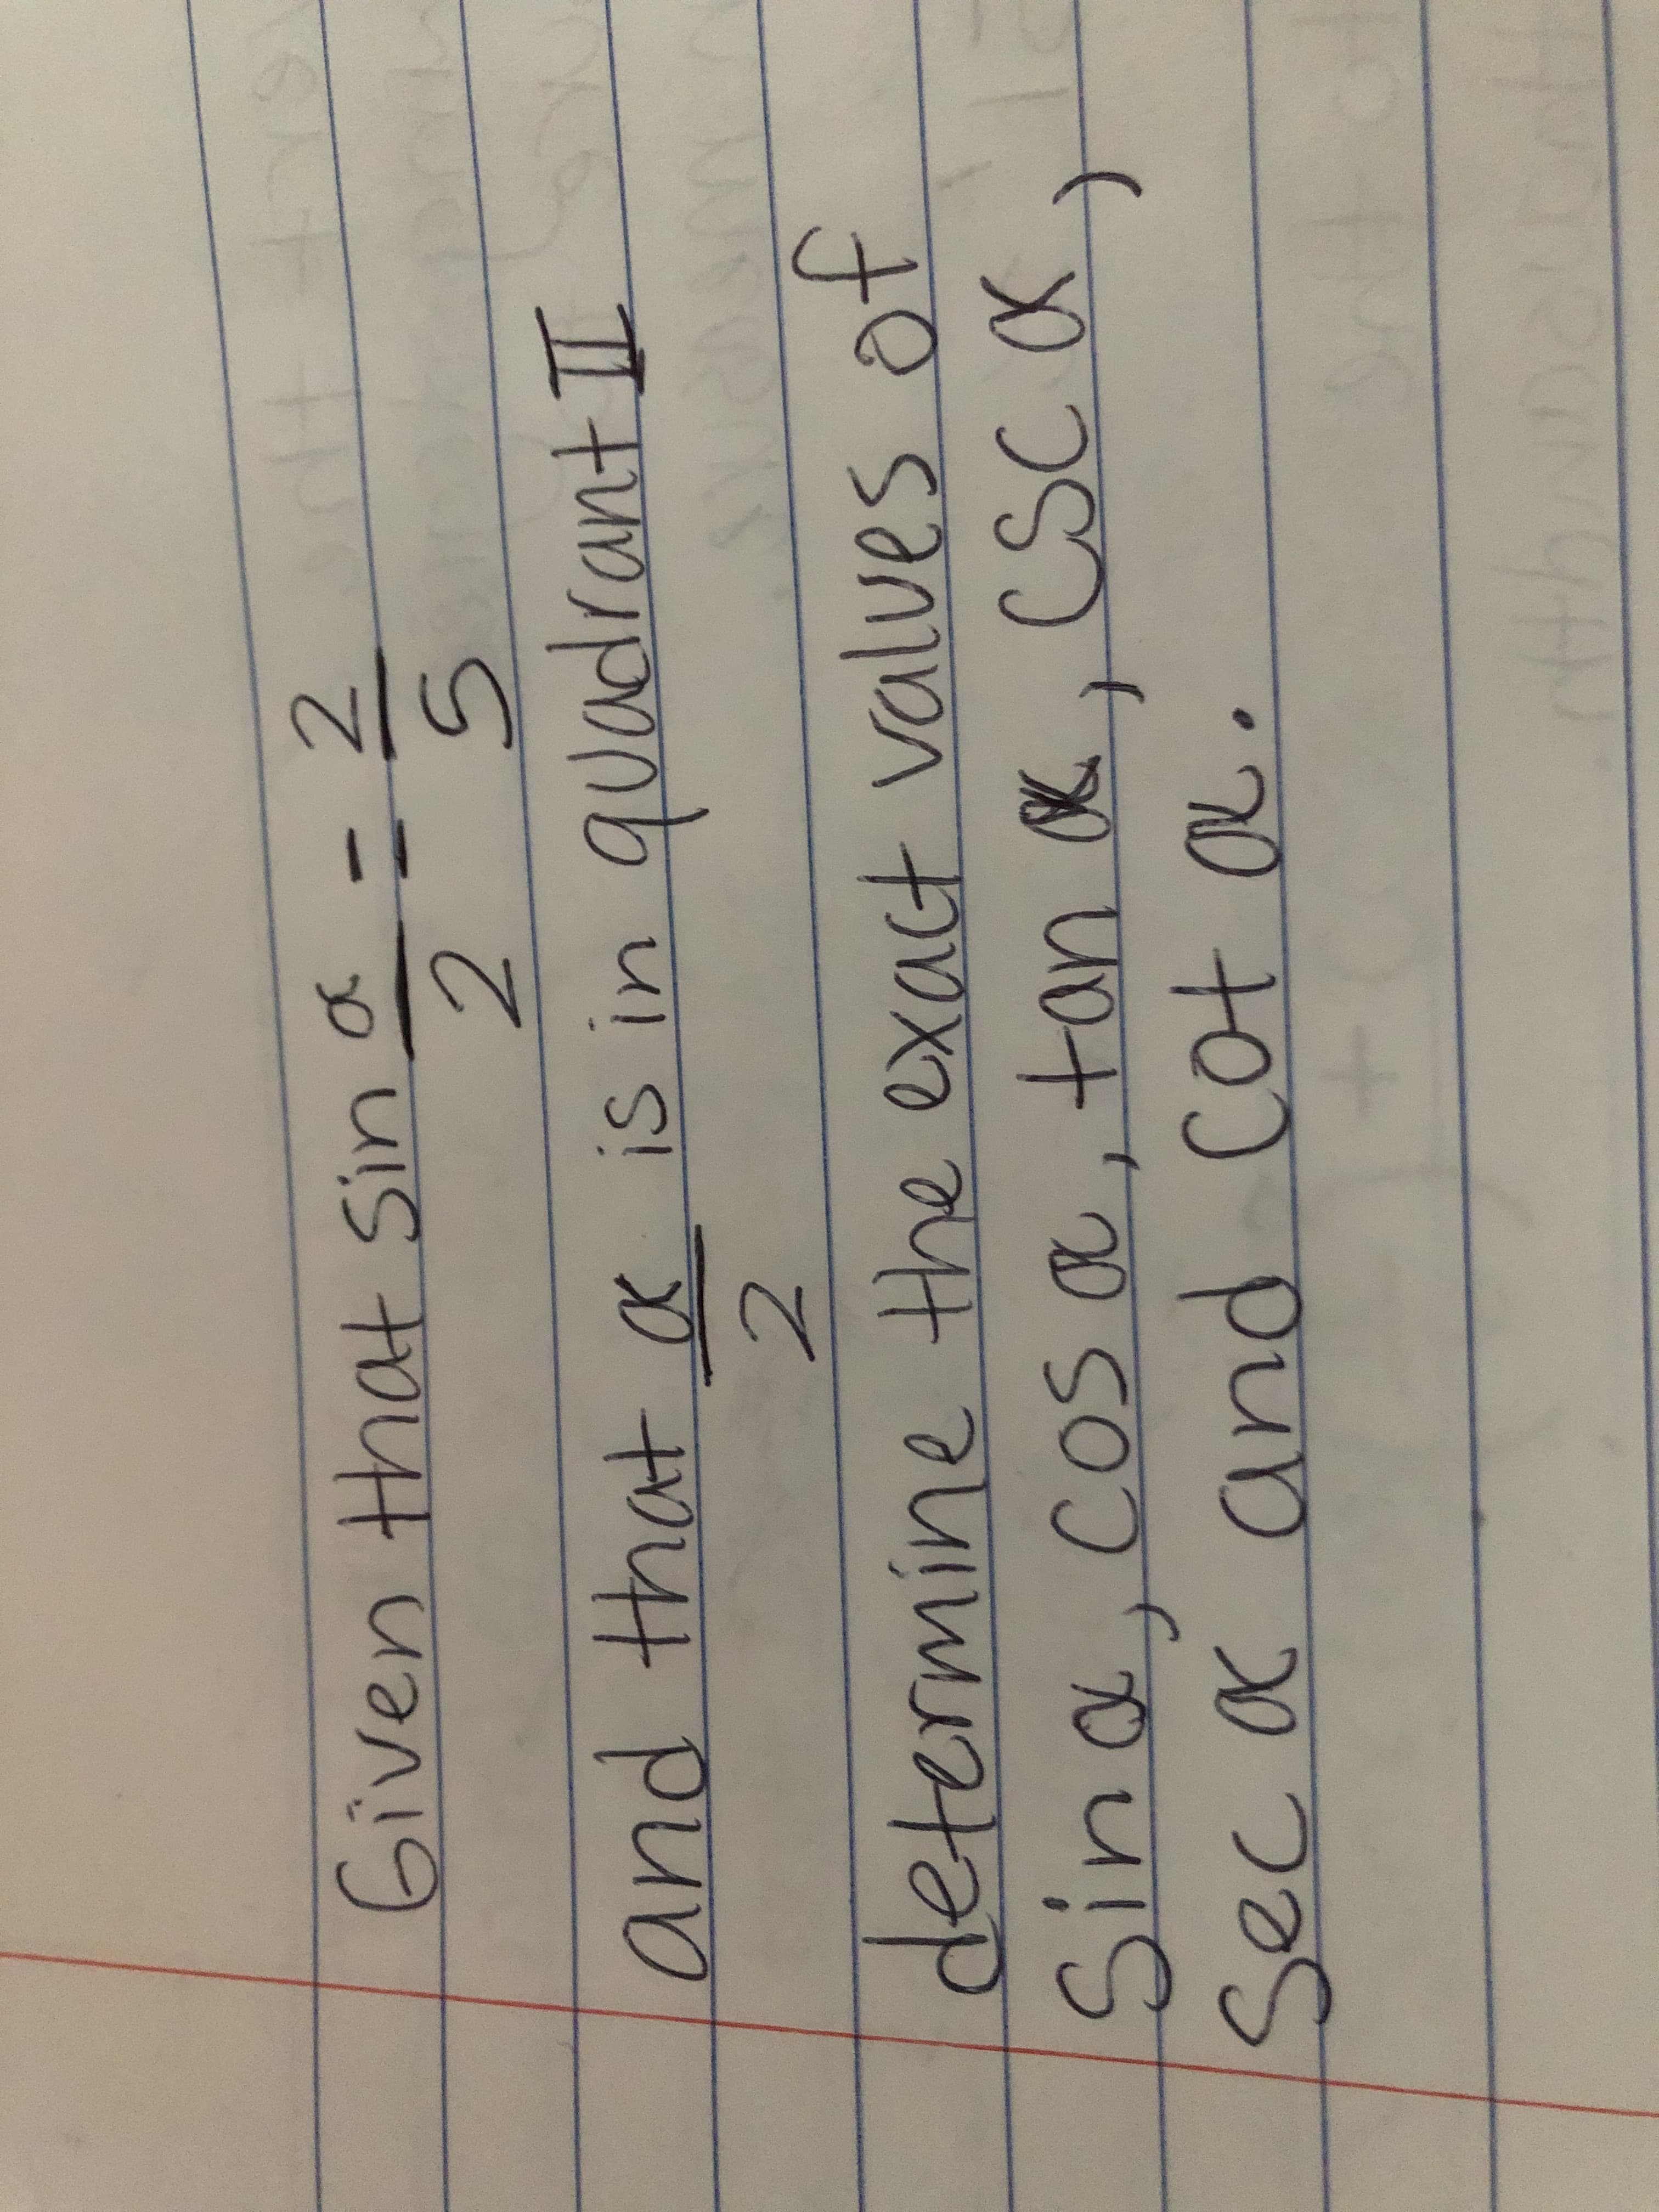 Given that Sin α/2 = 2/5
and that α/2 is in quadrant II
determine the exact values of
Sin α, cos α, tan α, csc α,
Sec α and cot α.